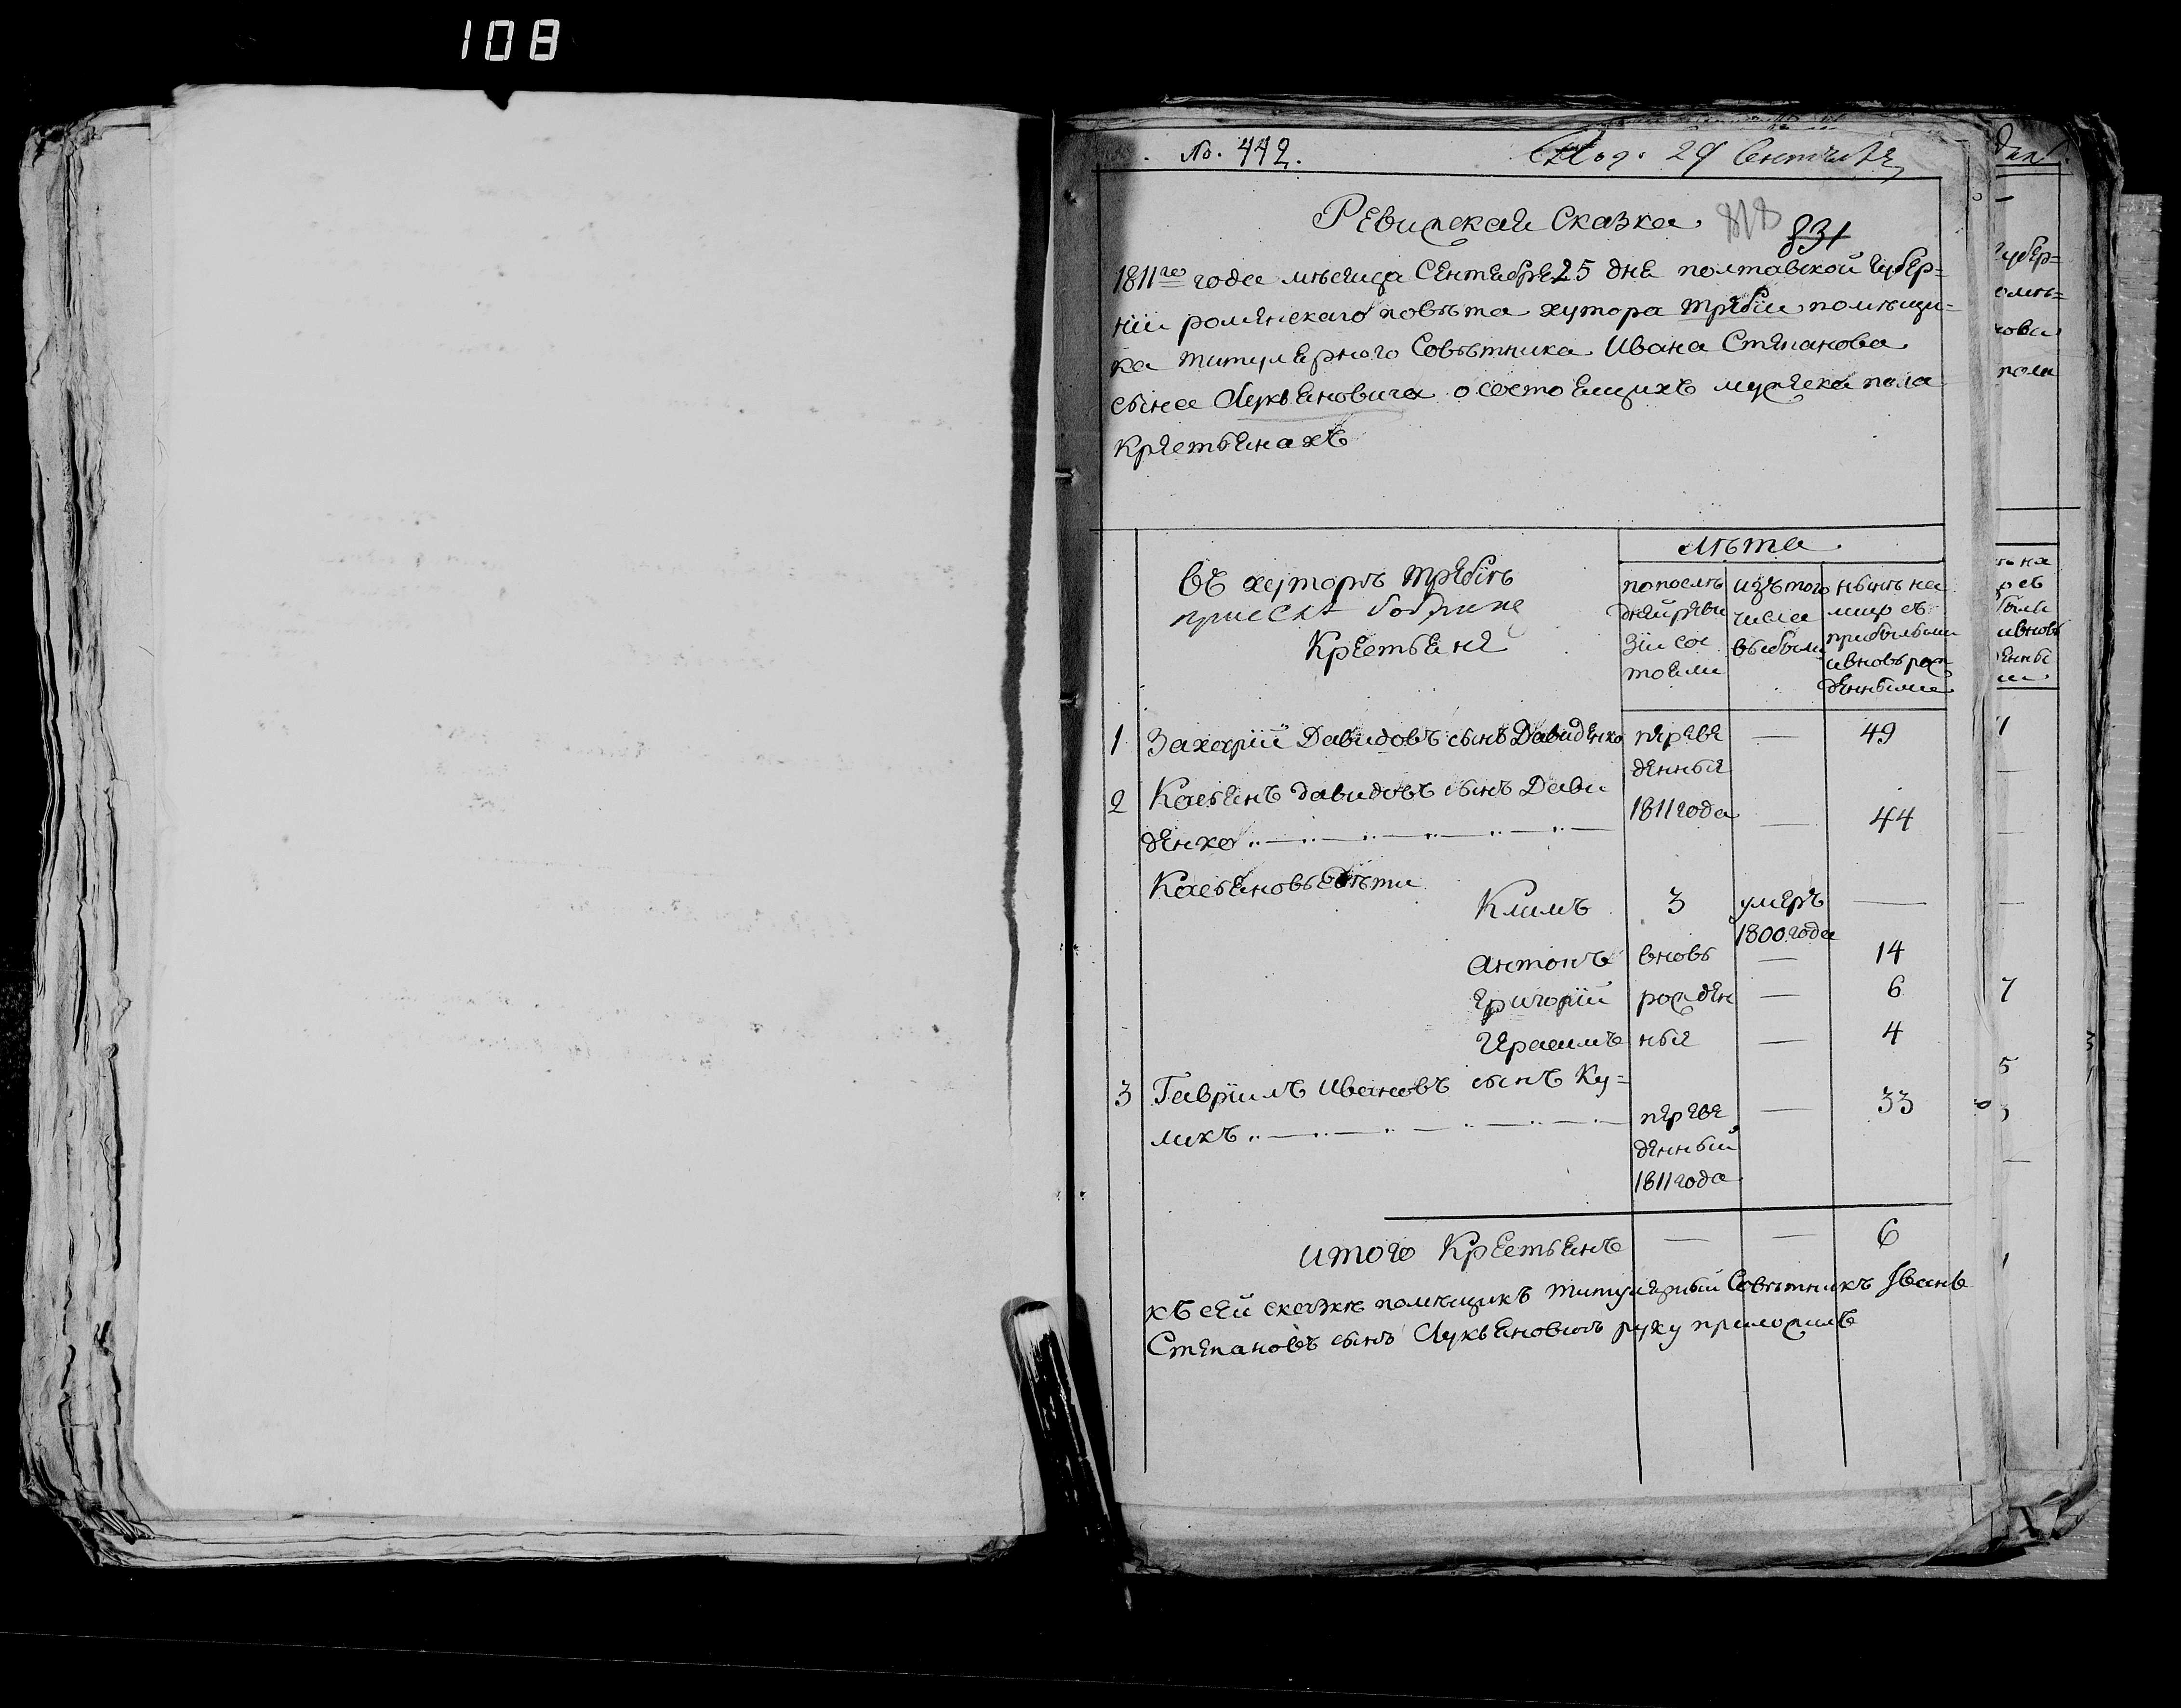 108
No. 442.
29 Сентября
Ревижская Сказка
831
1811го года мѣсяца Сентября 25 дня полтавской Губер=
ніи роменскаго повѣта хутора Требіи помѣщи=
ка титулярного Совѣтника Ивана Степанова
сына Лукьяновича о состоящихъ мужска пола
крестьянахъ
Лѣта
въ хуторѣ Требіѣ
Крестьяне
попослѣ
дней реви
зіи сос
тояли
изътого
числа
выбыли
нынѣ на
лицо съ
прибылыми
ивновьрож
денными
1 Захарій Давидовъ сынъ Давиденко переве — 49
денныя
2 Касьянъ давидовъ сынъ Дави
1811 года — 44
денко
Касьяновы дѣти
Климъ 3 умеръ —
1800 года
Антонъ вновь — 14
Григорій рожден — 6
Герасимъ ныя — 4
3 Гавріилъ Ивановъ сынъ Ку=
ликъ переве — 33
денный
1811 года
итого Крестьянъ — — 6
къ сей сказкѣ помѣщикъ титулярный Совѣтникъ Іванъ
Степановъ сынъ Лукьяновичъ руку приложилъ